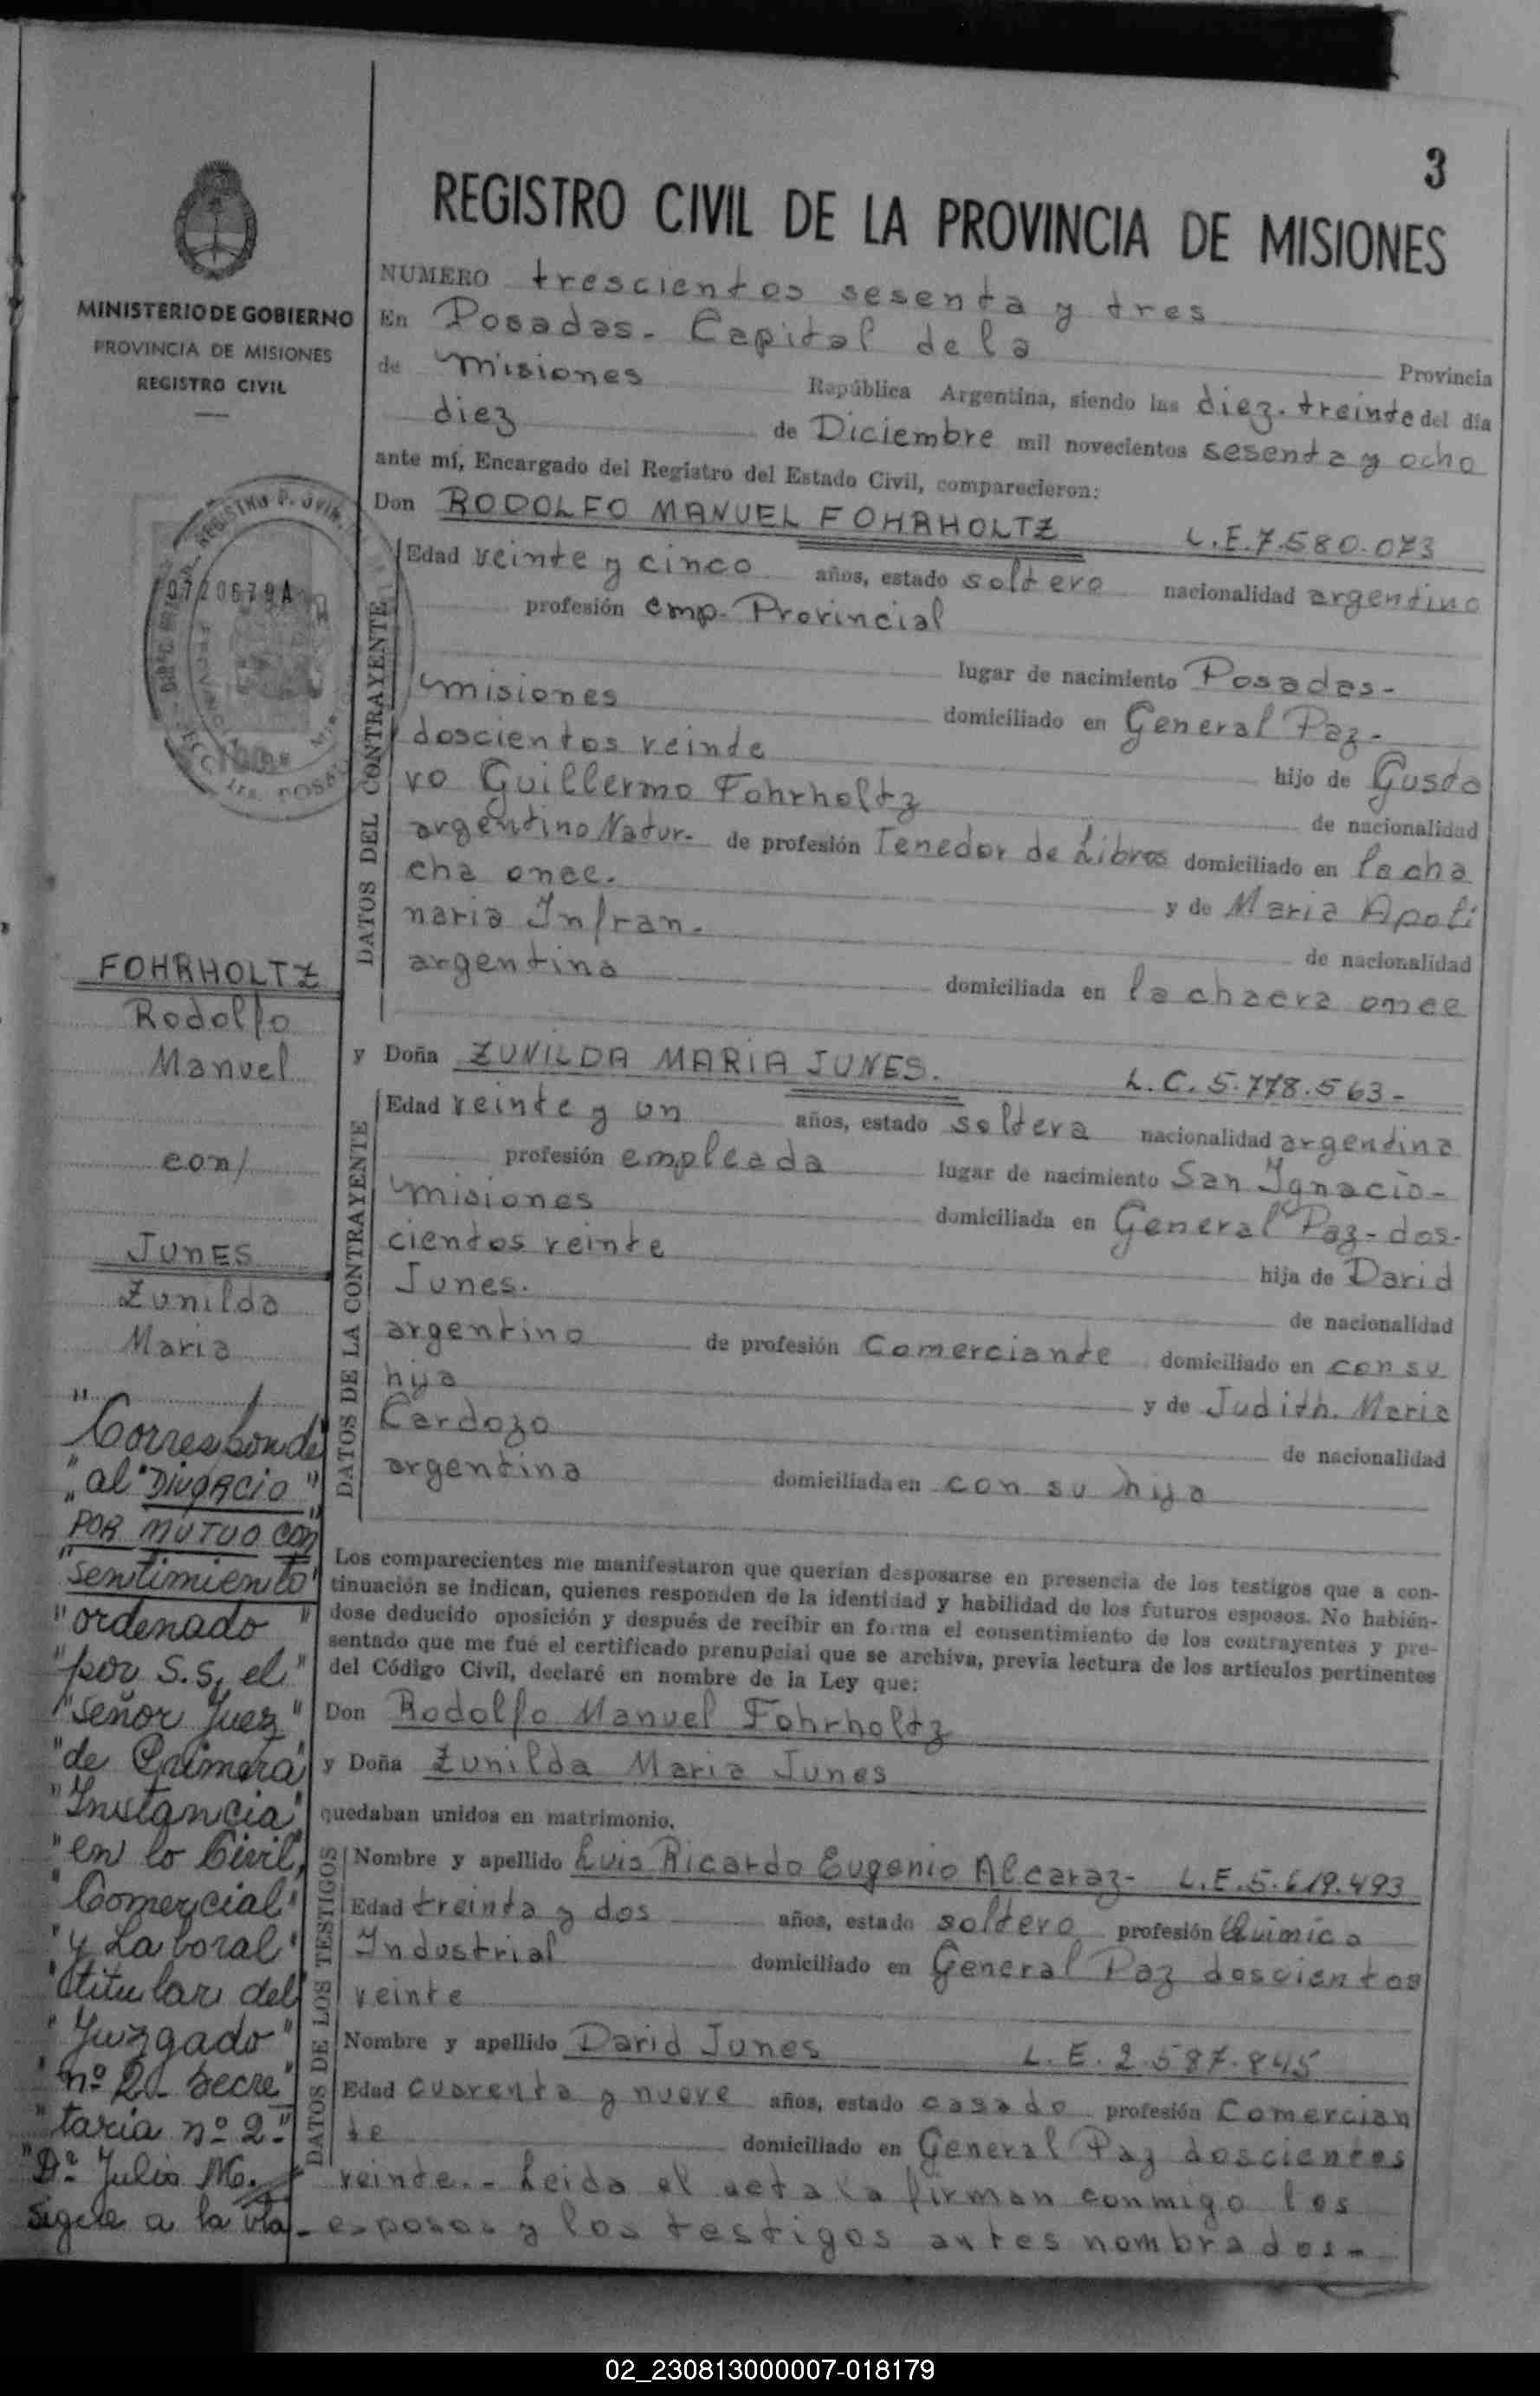 3
REGISTRO CIVIL DE LA PROVINCIA DE MISIONES
MINISTERIO DE GOBIERNO
PROVINCIA DE MISIONES
REGISTRO CIVIL
NUMERO trescientos sesenta y tres
En Posadas - Capital de la Provincia
de Misiones República Argentina, siendo las diez. treinta del día
diez de Diciembre mil novecientos sesenta y ocho
ante mí, Encargado del Registro del Estado Civil, comparecieron:
Don RODOLFO MANUEL FOHRHOLTZ L.E.7.580.073
DATOS DEL CONTRAYENTE
Edad veinte y cinco años, estado soltero nacionalidad argentino
profesión emp. Provincial
lugar de nacimiento Posadas-
Misiones domiciliado en General Paz-
doscientos veinte hijo de Gusta
vo Guillermo Fohrholtz de nacionalidad
argentino Natur. de profesión Tenedor de Libros domiciliado en la cha
cra once. y de Maria Apoli
naria Infran. de nacionalidad
argentina domiciliada en la chacra once
y Doña ZUNILDA MARIA JUNES. L.C. 5.778.563-
DATOS DE LA CONTRAYENTE
Edad veinte y un años, estado soltera nacionalidad argentina
profesión empleada lugar de nacimiento San Ignacio-
Misiones domiciliada en General Paz-dos-
cientos veinte hija de David
Junes. de nacionalidad
argentino de profesión Comerciante domiciliado en con su
hija y de Judith. Maria
Cardozo de nacionalidad
argentina domiciliada en con su hija
Los comparecientes me manifestaron que querían desposarse en presencia de los testigos que a con-
tinuación se indican, quienes responden de la identidad y habilidad de los futuros esposos. No habién-
dose deducido oposición y después de recibir en forma el consentimiento de los contrayentes y pre-
sentado que me fué el certificado prenupcial que se archiva, previa lectura de los artículos pertinentes
del Código Civil, declaré en nombre de la Ley que:
Don Rodolfo Manuel Fohrholtz
y Doña Zunilda Maria Junes
quedaban unidos en matrimonio.
DATOS DE LOS TESTIGOS
Nombre y apellido Luis Ricardo Eugenio Alcaraz- L.E.5.619.493
Edad treinta y dos años, estado soltero profesión Quimico
Industrial domiciliado en General Paz doscientos
veinte
Nombre y apellido David Junes L.E.2.587.845
Edad cuarenta y nueve años, estado casado profesión Comercian
te domiciliado en General Paz doscientos
veinte.- Leida el acta la firman conmigo los
esposos y los testigos antes nombrados.-
07720679A
FOHRHOLTZ
Rodolfo
Manuel
con/
JUNES
Zunilda
Maria
"Corresponde
"al "DIVORCIO"
POR MUTUO CON
"sentimiento"
"ordenado"
"por S.S, el"
"señor Juez"
"de Primera"
"Instancia"
"en lo Civil,
"Comercial"
"y Laboral"
"titular del
"Juzgado"
"nº 2- Secre"
"taria nº 2-"
"Dº Julio M.
sigue a la vta-
02_230813000007-018179